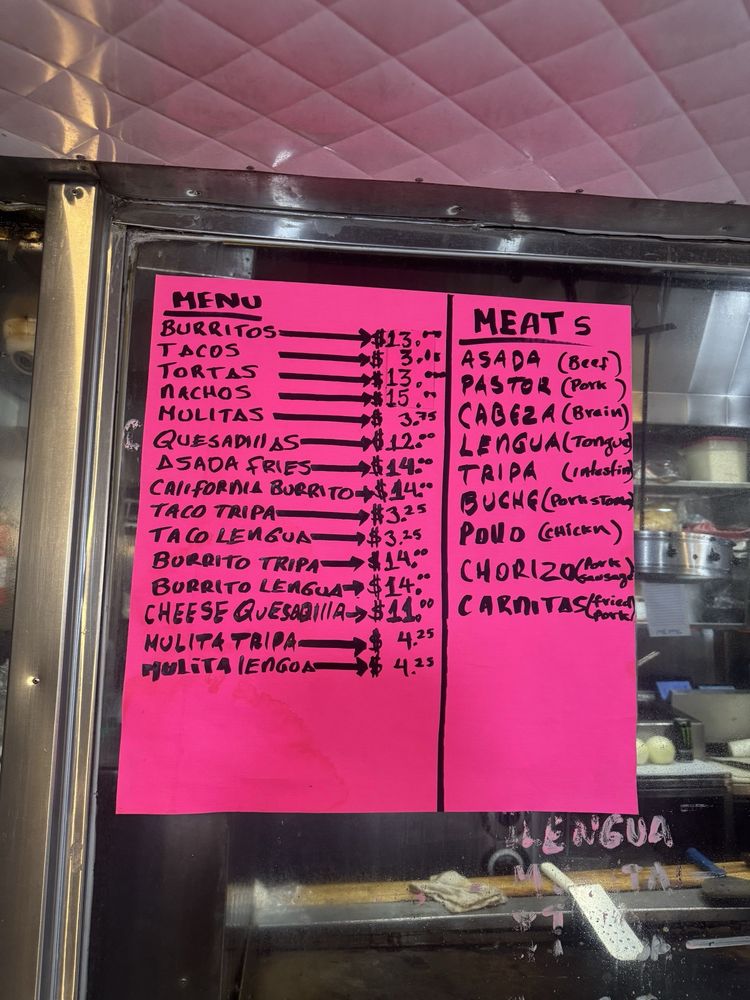 MENU
BURRITOS $13.00
TACOS $3.
TORTAS $13.00
NACHOS $15.00
MULITAS $3.75
QUESADILLAS $12.00
ASADA FRIES $14.00
CALIFORNIA BURRITO $14.00
TACO TRIPA $3.25
TACO LENGUA $3.25
BURRITO TRIPA $14.00
BURRITO LENGUA $14.00
CHEESE QUESADILLA $11.00
MULITA TRIPA $4.25
MULITA LENGUA $4.25
MEATS
ASADA (Beef)
PASTOR (Pork)
CABEZA (Brain)
LENGUA (Tongue)
TRIPA (intestin)
BUCHE (Pork stom
POLLO (Chickn)
CHORIZO (Pork
Sausage
CARNITAS (fried
Pork)
LENGUA